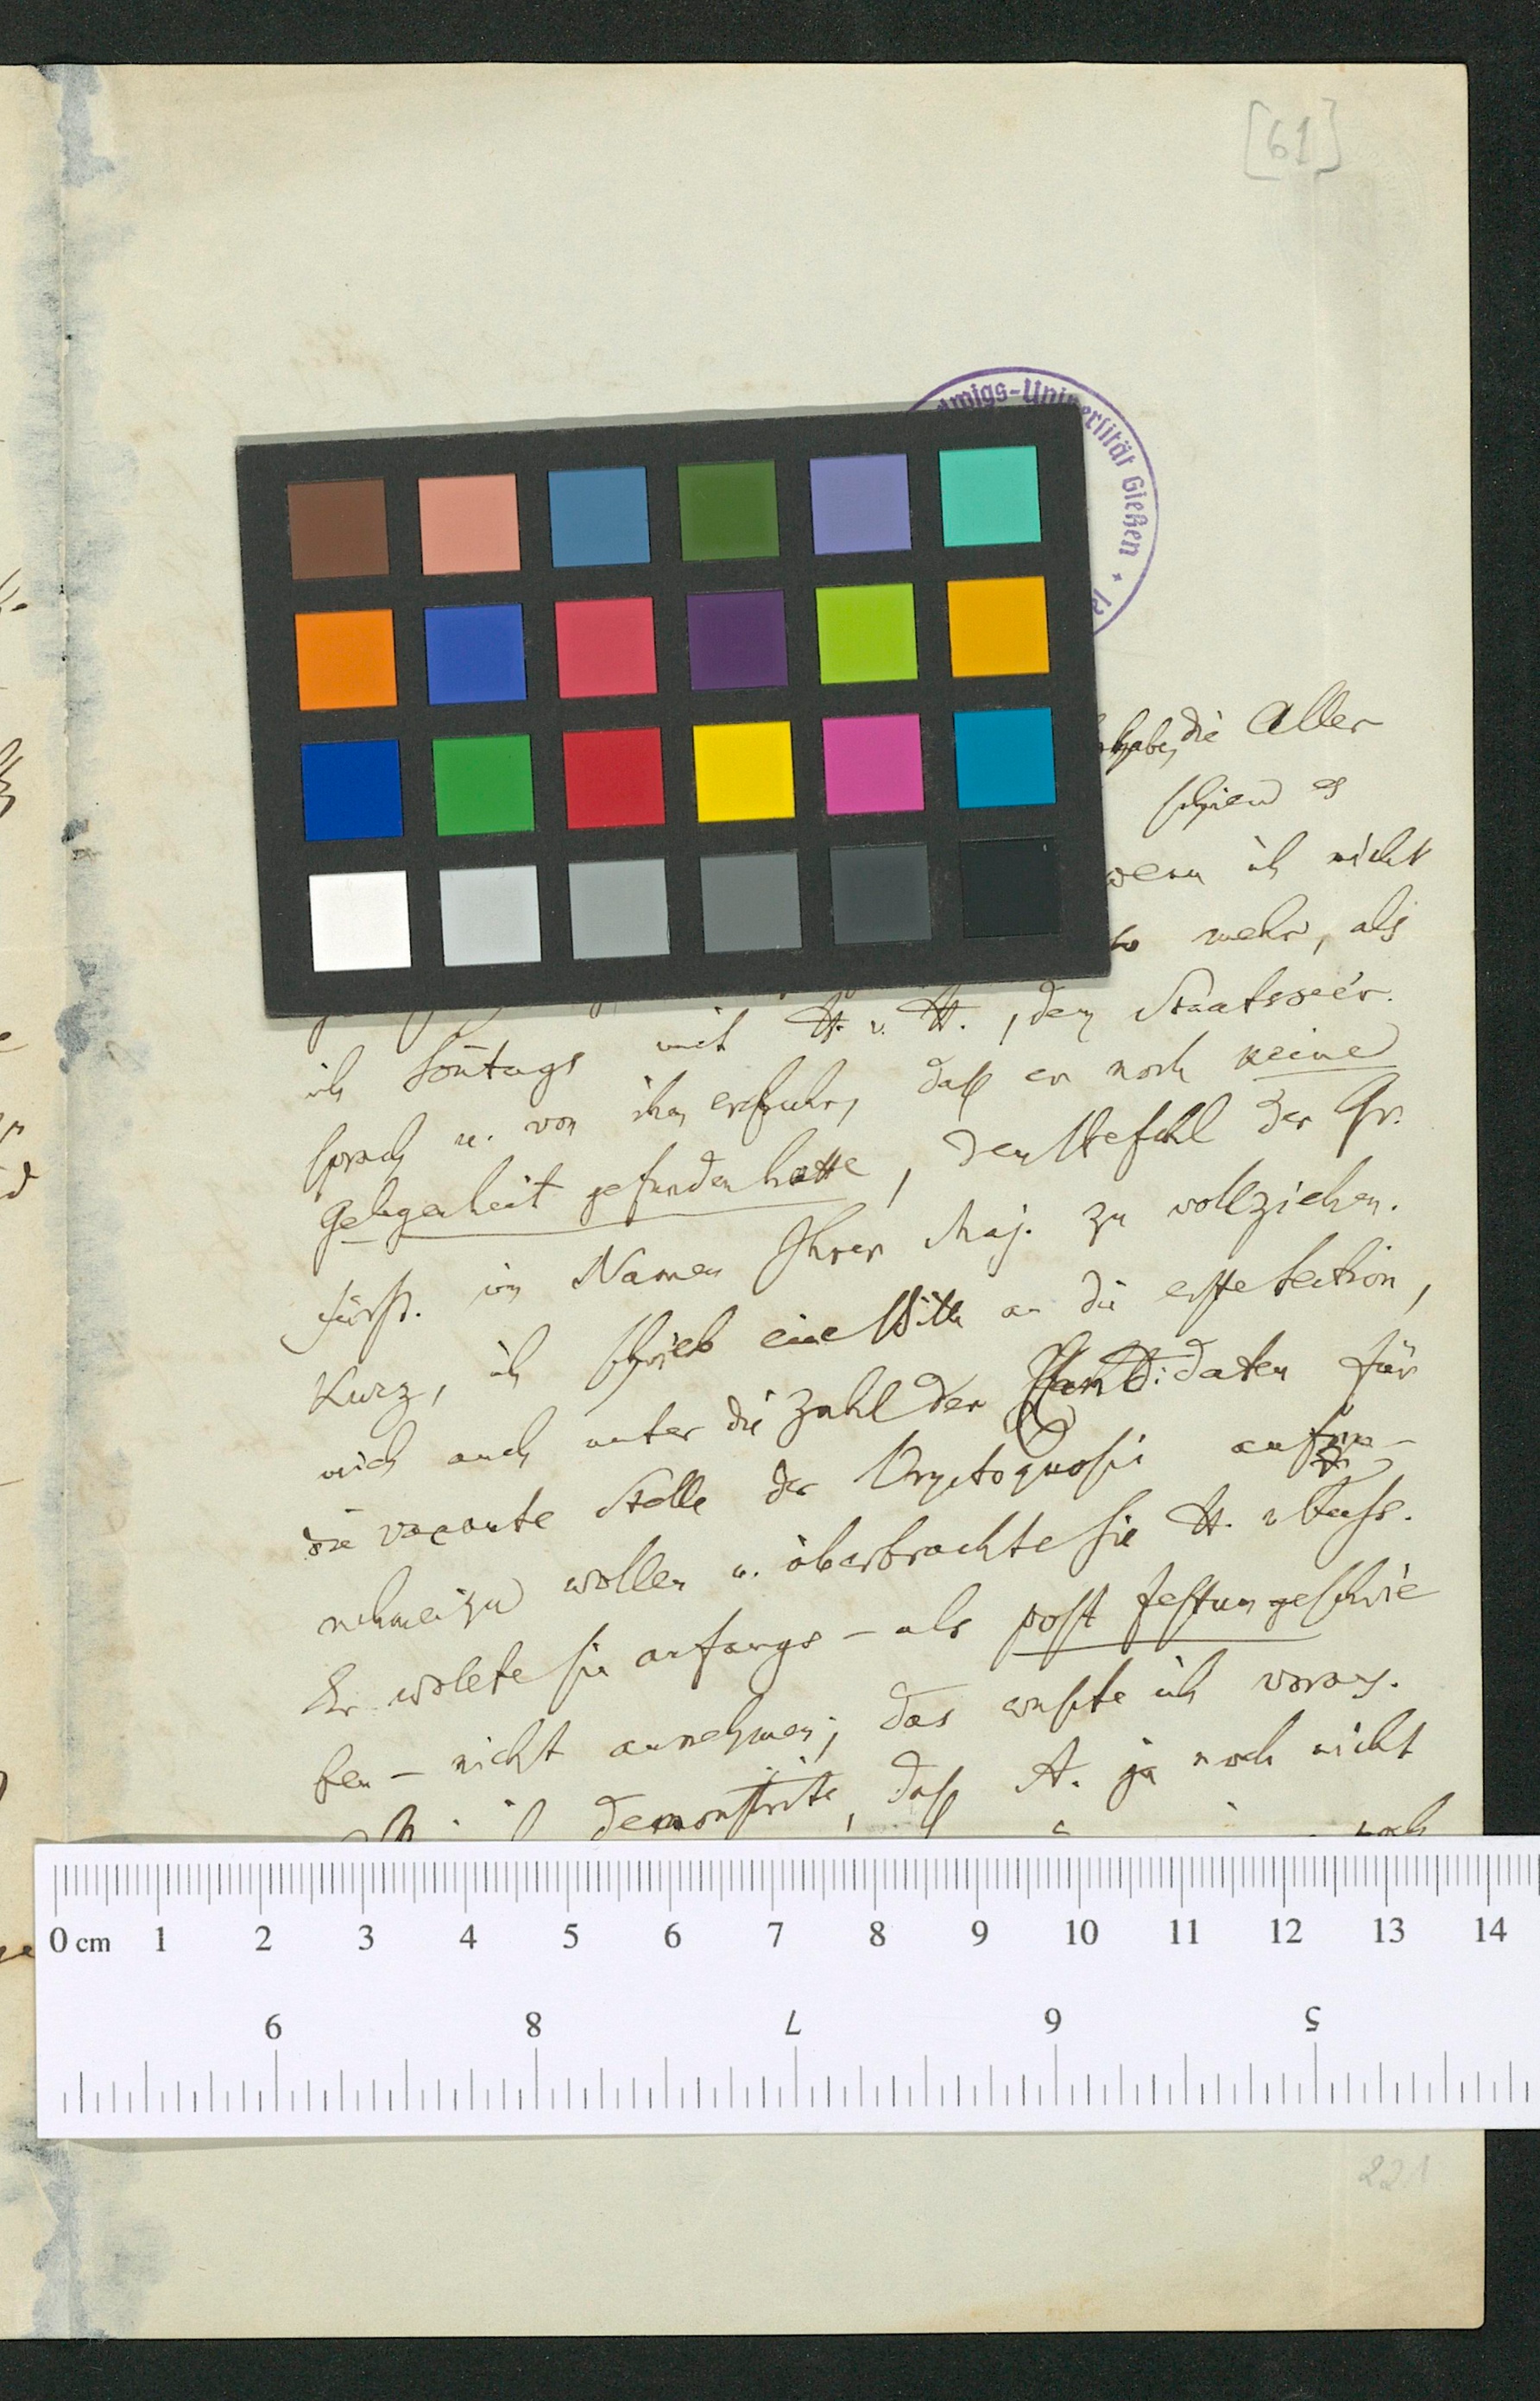 [61]
wigs-Universität Gießen
habe, die Aller
schien es
wenn ich nicht
so mehr, als
ich Sontags mit H. v. H., dem Staatssecr.
sprach u. von ihm erfuhr, daß er noch keine
Gelegenheit gefunden hatte, den Befehl der Gr.
fürst. im Namen Ihrer Maj. zu vollziehen.
Kurz, ich schrieb eine Bitte an die erste Section,
mich auch unter die Zahl der Kandidaten für
die vacante Stelle der Oryctognosie aufzu-
nehmen zu wollen u. überbrachte sie H. v
Er wollte sie anfangs – als post festum geschrie
ben – nicht annehmen; das wußte ich voraus.
demonstrirte, daß A. ja noch nicht
noch
0 cm 1 2 3 4 5 6 7 8 9 10 11 12 13 14
9 8 7 6 5
221